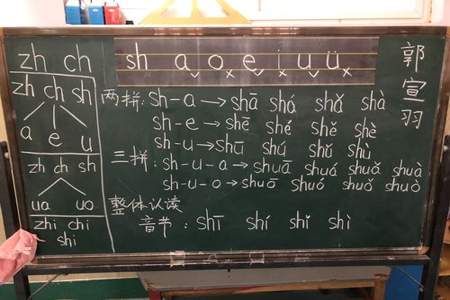 zh ch
zh ch sh
a e u
zh ch sh
ua uo
zhi chi
shi
sh a o e i u ü
两拼: sh-a→shā shá shǎ shà
sh-e→shē shé shě shè
sh-u→shū shú shǔ shù
三拼: sh-u-a→shuā shuá shuǎ shuà
sh-u-o→shuō shuó shuǒ shuò
整体认读
音节: shī shí shǐ shì
郭宣羽